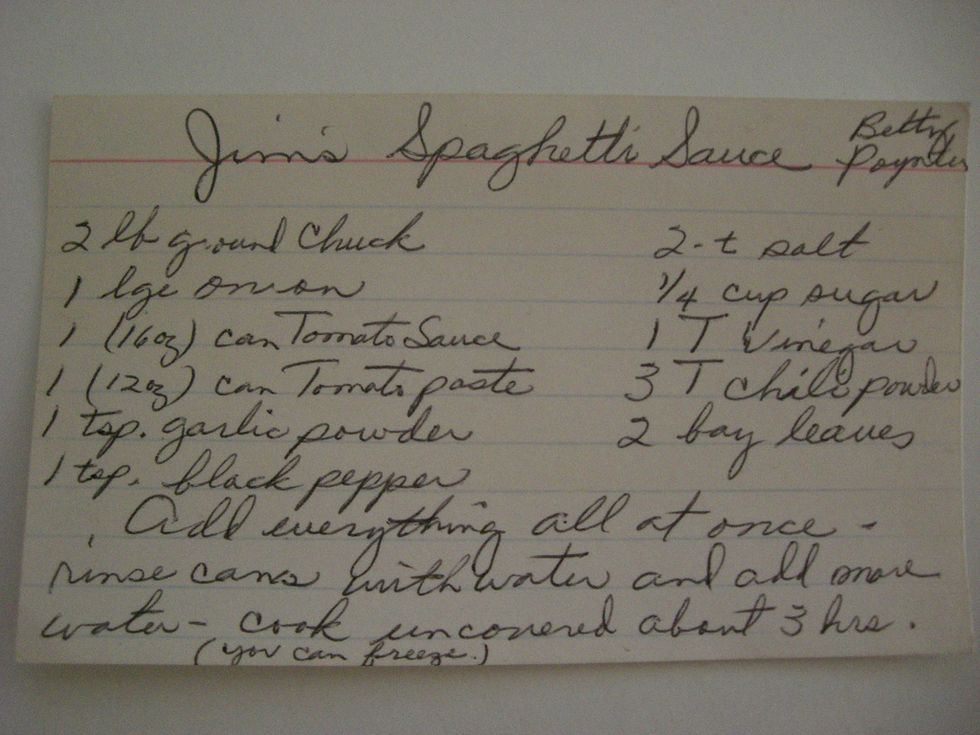 Jim's Spaghetti Sauce
Betty
Poynter
2 lb ground chuck
1 lge onion
1 (16oz) can Tomato Sauce
1 (12oz) can Tomato paste
1 tsp. garlic powder
1 tsp. black pepper
2-t salt
1/4 cup sugar
1 T Vinegar
3 T chili powder
2 bay leaves
Add everything all at once -
rinse cans with water and add more
water - cook uncovered about 3 hrs.
(you can freeze.)